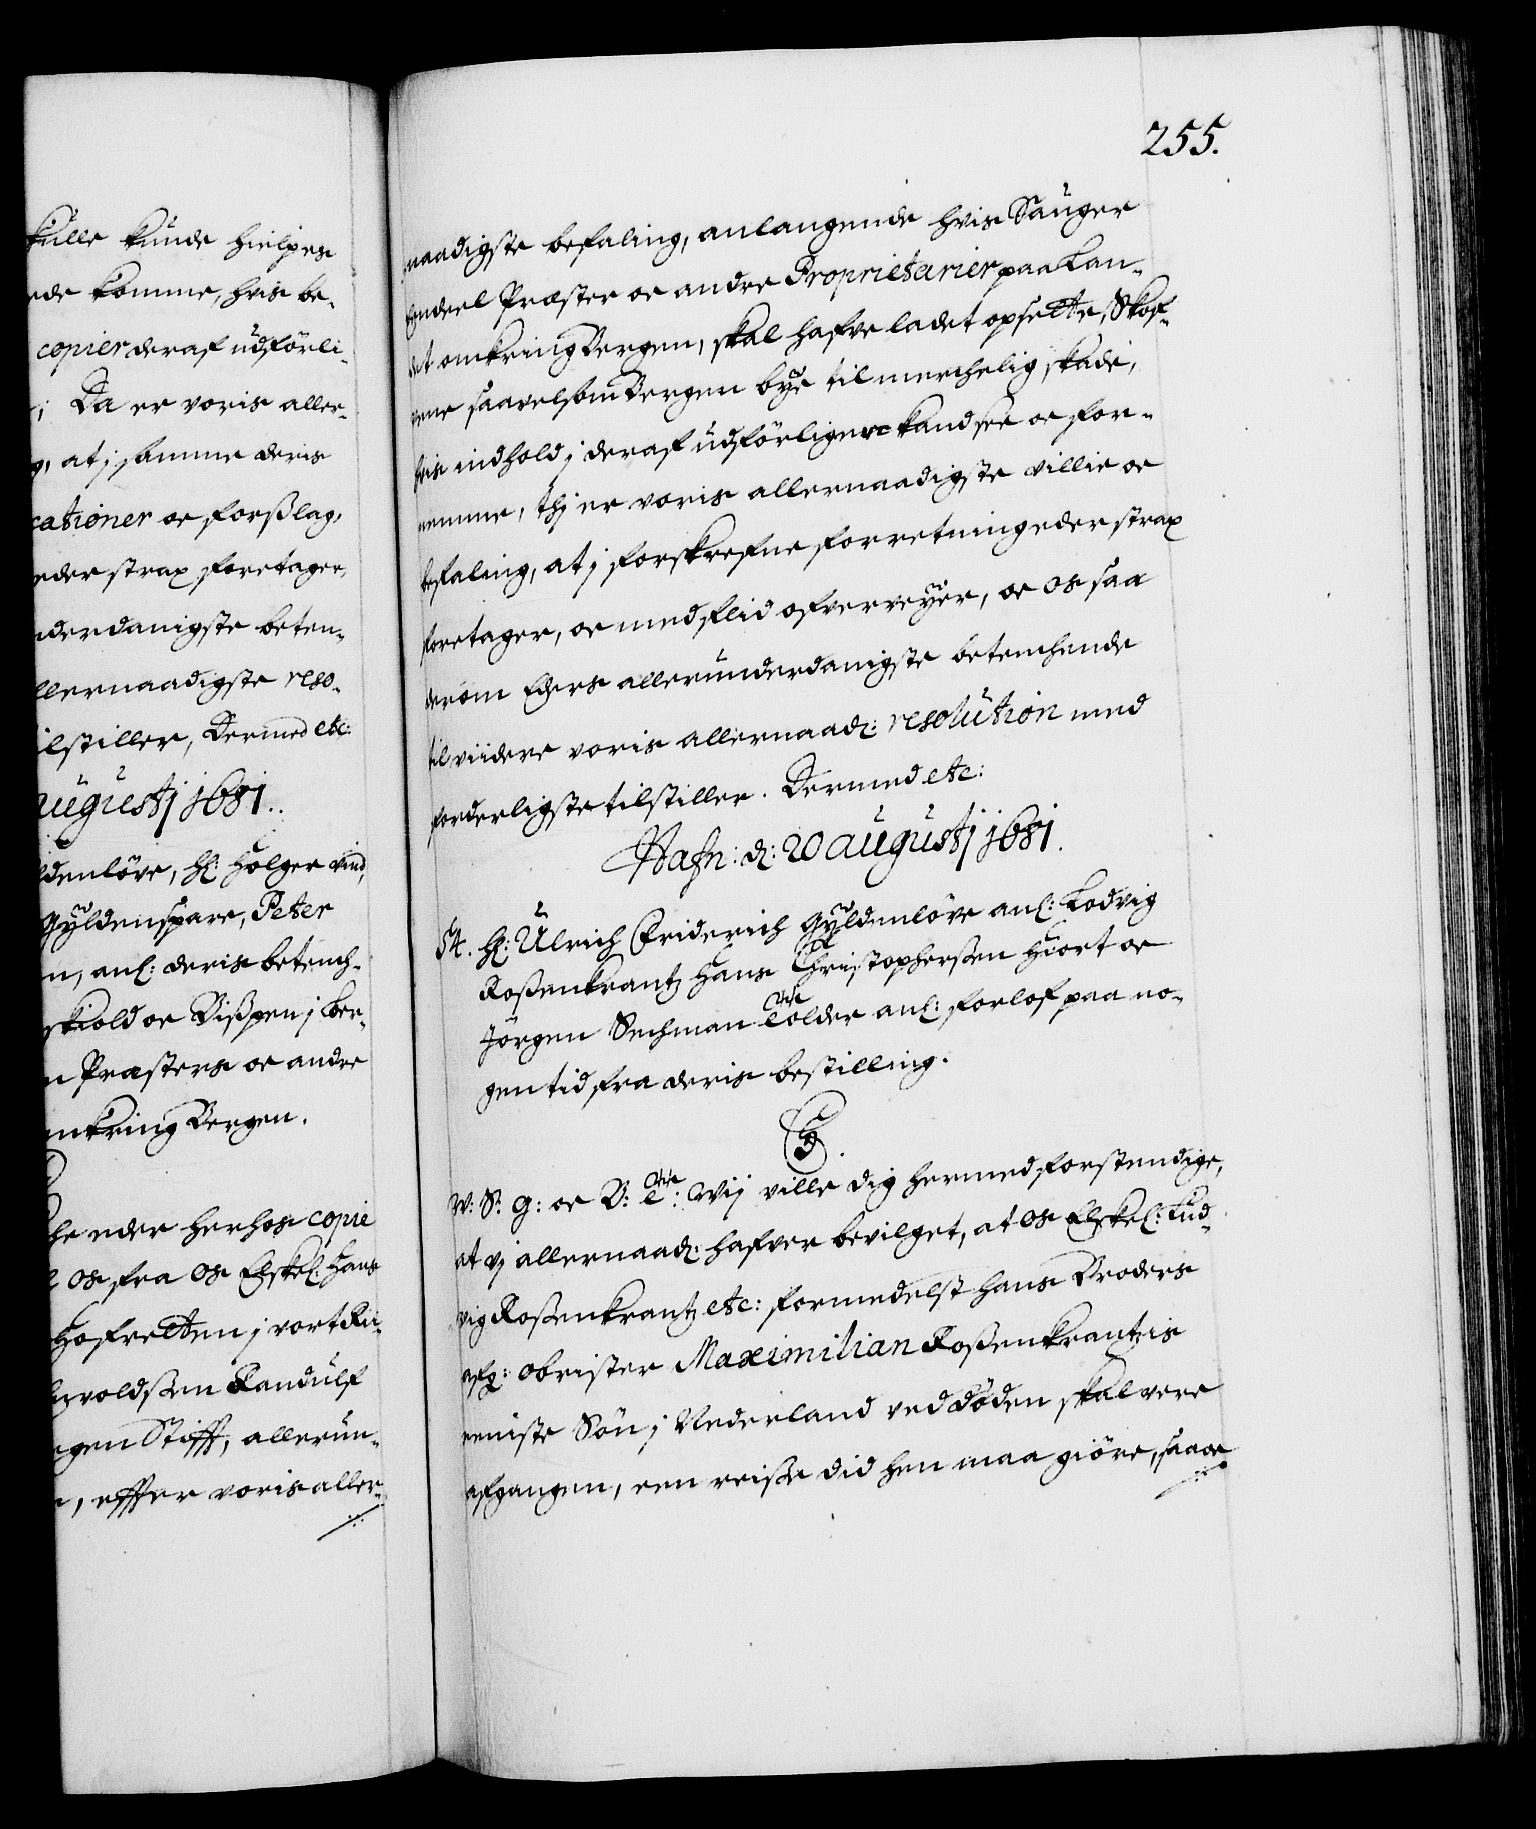 kulle kunde hielpes
ede komme, hvis be-
copier deraf udførli-
; Da er voris aller-
g, at j samme deris
cationer oc forslag,
eder strax foretager,
nderdanigste beten-
llernaadigste reso-
ilstiller, Dermed etc:
ugustj 1681.
ldenløve, H: Holger Vind,
Gyldenspare, Peter
n, anl: deris betench-
skiold oc Bispen j Ber-
n Præsters oc andre
mkring Bergen.
he eder herhos copie
os fra os Elskel: Hans
Hofretten j vort Rii-
voldssen Randulf
gen Stifft, allerun-
, effter voris aller-
255.
naadigste befaling, anlangende hvis Sauger
Endeel Præster oc andre Proprietarier paa Lan-
det omkring Bergen, skal hafve ladet opsette, Skof-
vene saavelsom Bergen bye til merchelig skade,
hvis indhold j deraf udførligere kand see oc for-
nemme, thj er voris allernaadigste villie oc
befaling, at j forskrefne forretning eder strax
foretager, oc med flid ofverveyer, oc os saa
derom Eders allerunderdanigste betenchende
til viidere voris allernaad: resolution med
forderligste tilstiller. Dermed etc:
Hafn: d: 20 augustj 1681.
54. H: Ulrich Friderich Gyldenløve anl: Lodvig
Rosenkrantz Hans Christophersen Hiort oc
Jørgen Sechman Colder anl: forlof paa no-
gen tid fra deris bestilling.
C5.
W: S: G: oc V: Wij ville dig hermed forstendige,
at vj allernaad: hafver bevilget, at os Elskel: Lud-
vig Rosenkrantz etc: formedelst hans Broders
afg: obrister Maximilian Rosenkrantzis
eeniste Søn j Nederland ved døden skal vere
afgangen, een reise did hen maa giøre, saa oc